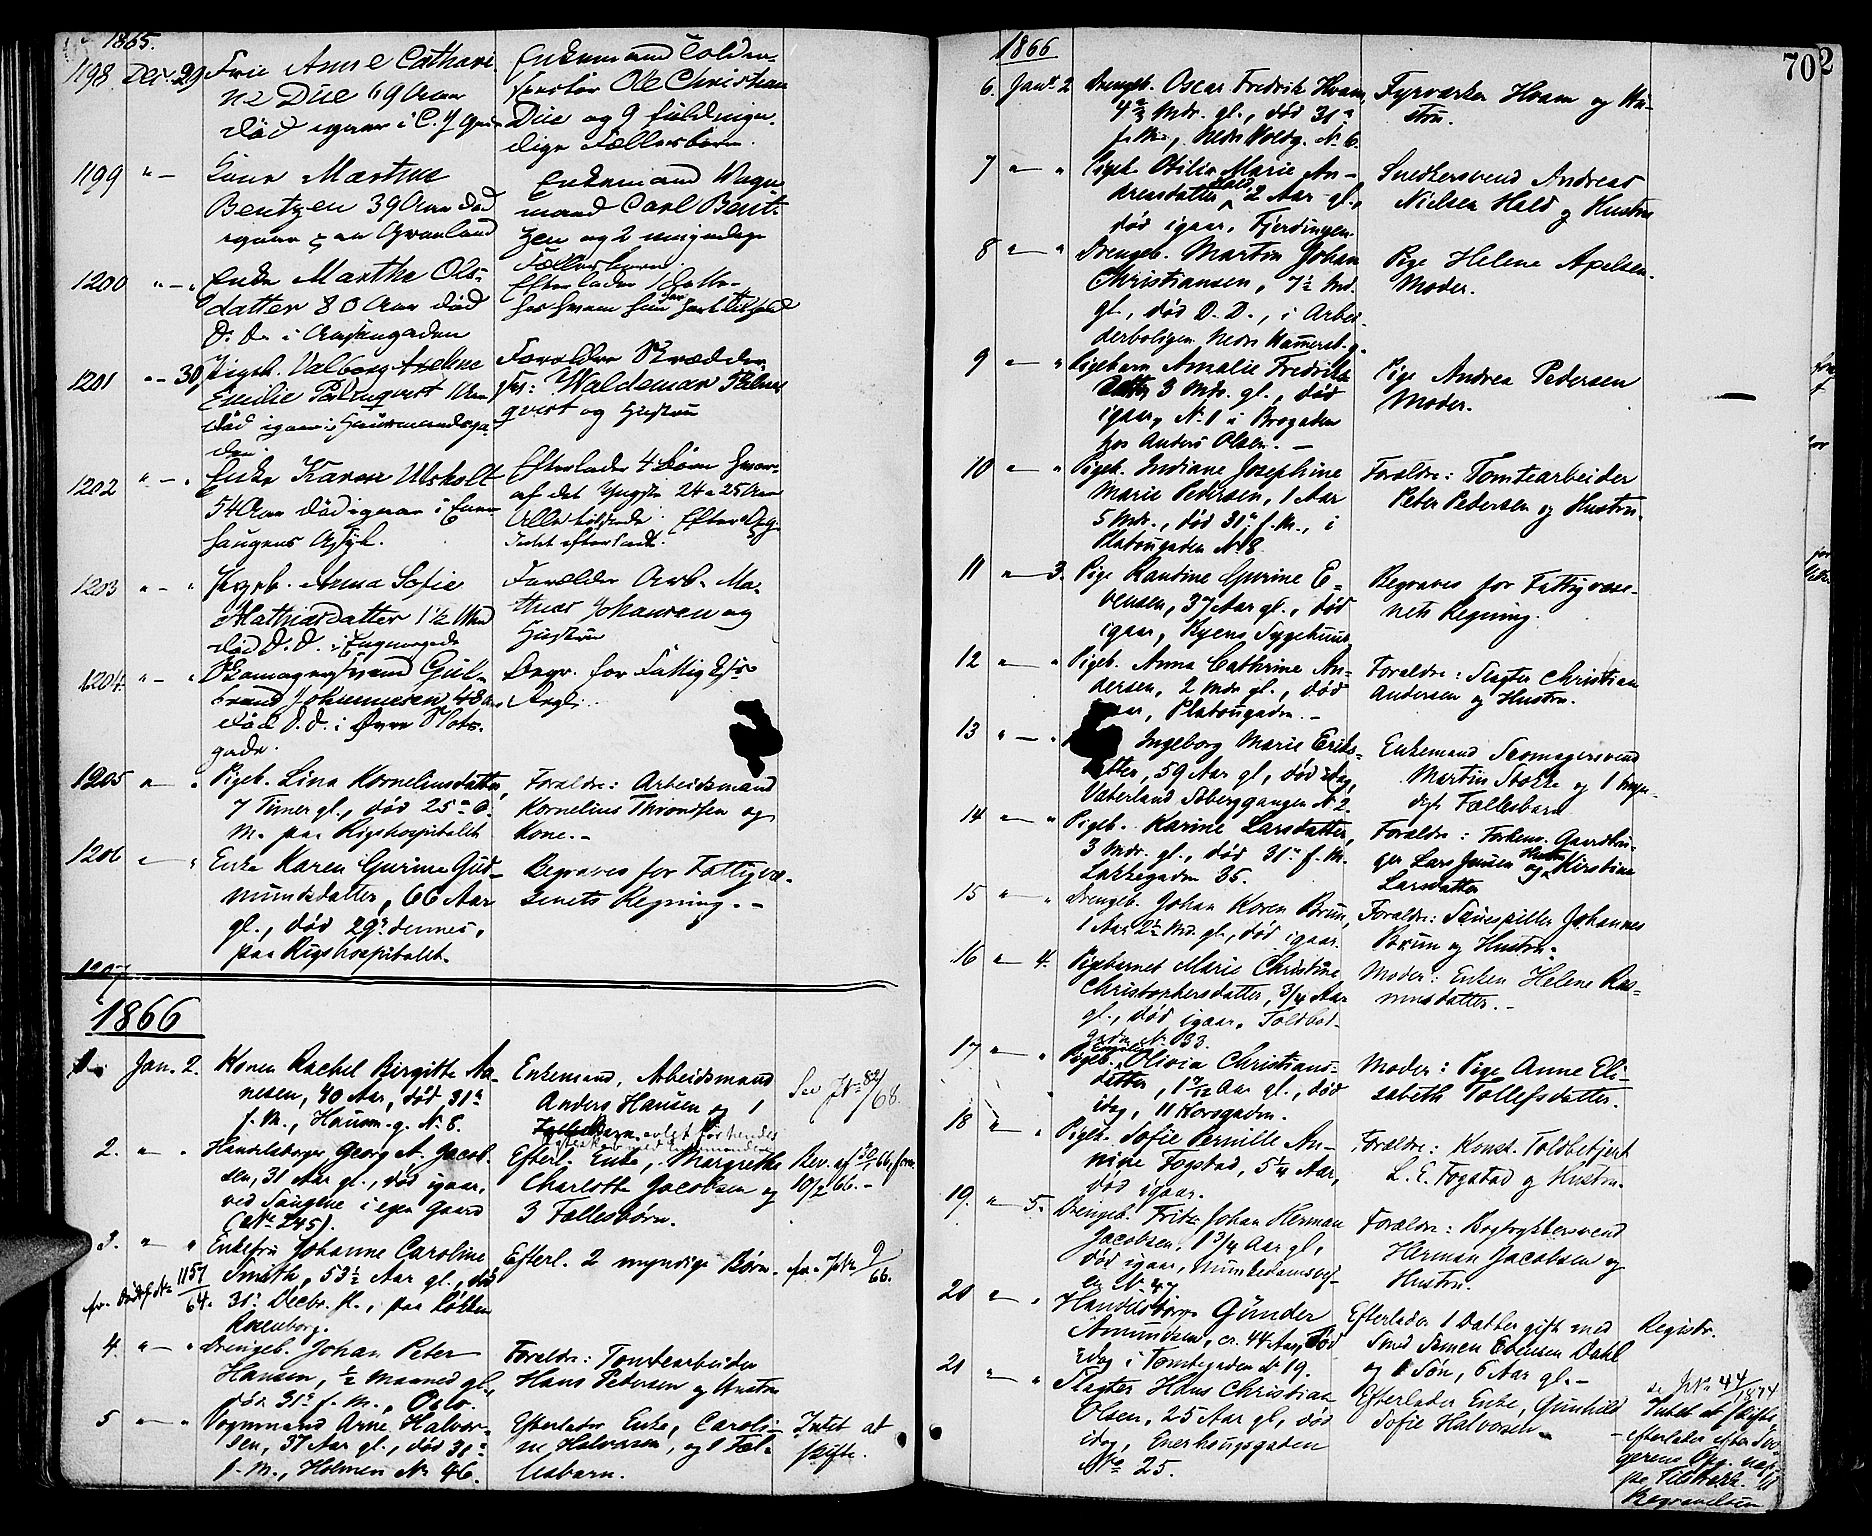 1865.
1198 Dec. 29 Frue Anne Cathari-
ne Due 69 Aar
død igaar i C. J.
Enkemand Tolder
Ole Christian
Due og 9 fuldmyn-
dige Fællesbørn.
1199 " — Kone Marthe
Bentzen 39 Aar død
igaar paa Grønland
Enkemand Vogn-
mand Carl Bent-
zen og 2 umyndige
Fællesbørn.
1200 " — " Enke Marthe Ols-
datter 80 Aar død
D. D. i
Efterlader 1 Datter
hos hvem hun har havt Tilhold
1201 " — 30 Pigeb. Valborg
Emilie Palmqvist 1 Aar
død igaar i Hausmandsga-
den.
Forældre Skrædder
Waldemar Palm-
qvist og Hustru
1202 " — " Enke Karen Ulsholt
54 Aar død igaar i Ener-
haugens Asyl.
Efterlader 4 Børn hvor-
af det Yngste 24 a 25 Aar
Alle tilstede. Efter Opg.
Intet efterladt.
1203 " — " Pigeb. Anna Sofie
Mathiasdatter 1½ Aar
død D. D. i
Forældre Arb. Ma-
thias Johansen og
Hustru
1204 " — " Skomagersvend Gul-
brand Johannesen, 48 Aar
død D. D. i Øvre Slots-
gade.
Begr. for Fattigv.
Regn.
1205 " — " Pigeb. Lina Kornelinsdatter,
7 Timer gl., død 25de d.
M. paa Rigshospitalet
Forældre: Arbeidsmand
Kornelius Throndsen og
Kone. –
1206 " — " Enke Karen Gurine Gud-
mundsdatter, 66 Aar
gl., død 29de dennes,
paa Rigshospitalet.
Begraves for Fattigvæ-
senets Regning. –
1207
1866
1. Jan. 2. Konen Rachel Birgitte Aa-
nesen, 40 Aar, død 31te
f. M., Hausm. g. No 8.
Enkemand, Arbeidsmand
Anders Hansen og 1
See No 82/68.
2. " — " Handelsborger Georg A. Jacob-
sen, 31 Aar gl., død igaar,
ved Saugene i egen Gaard
(No 245).
Efterl. Enke, Margrethe
Charlotte Jacobsen og
3 Fællesbørn.
Bev. af 30/1 66, frem.
10/2 66. –
3. " " Enkefru Johanne Caroline
Smith, 53½ Aar gl., død
31te Decbr. f., paa Løkken
Rosenborg.
1157/64.
Efterl. 2 myndige Børn.
fr. No 9/66.
4. " — " Drengeb. Johan Peter
Hansen, ½ Maaned gl.,
død 31te f. M., Oslo.
Forældre: Tomtearbeider
Hans Pedersen og Hustru
5 " — " Vognmand Arne Halvor-
sen, 37 Aar gl., død 31te
f. M., Holmen No 46.
Efterlader Enke, Caroli-
ne Halvorsen, og 1 Fæl-
lesbarn.
Intet at
skifte.
1866
702
6. Janr 2 Drengeb. Oscar Fredrik Hvam,
4 Mdr. gl., død 31te
f. M., Nedre Voldg. No 6.
Fyrværker Hvam og Hu-
stru.
7 " — " Pigeb. Otilie Marie An-
dreasdatter Hald, 2 Aar gl.,
død igaar, Fjerdingen.
Snedkersvend Andreas
Nielsen Hald og Hustru
8 " — " Drengeb. Martin Johan
Christiansen, 7½ Md.
gl., død D. D., i Arbei-
derboligen Nedre
Pige Helene Apelsen.
Moder.
9 " — " Pigebarn Amalie Fredriks-
datter 3 Mdr. gl., død
igaar, No 1 i Brogaden
hos Anders Olsen. –
Pige Andrea Pedersen
Moder.
10 " — " Pigeb. Indiane Josephine
Marie Pedersen, 1 Aar
5 Mdr., død 31te f. M., i
Platougaden No 8.
Forældre: Tomtearbeider
Peter Pedersen og Hustru.
11 " — 3. Pige Kantine Gurine E-
vensen, 37 Aar gl., død
igaar, Byens Sygehuus
Begraves for Fattigvæse-
nets Regning.
12 " — " Pigeb. Anna Cathrine An-
dersen, 2 Mdr gl., død
igaar, Platougaden. –
Forældre: Slagter Christian
Andersen og Hustru.
13 " — " Ingeborg Marie Eriks-
datter, 59 Aar gl, død idag,
Vaterland Ioberggangen No 2.
Enkemand Skomagersvend
Martin Stokke og 1 myn-
digt Fællesbarn
14 " — " Pigeb. Karine Larsdatter,
3 Mdr. gl., død 31te f. M.
Lakkegaden 35.
Forældre: Forhenv. Gaardbru-
ger Lars Jensen og Hustru Kirstine
Larsdatter
15 " — " Drengeb. Johan Koren Brun,
1 Aar 2½ Md. gl., død igaar.
Forældre: Skuespiller Johannes
Brun og Hustru.
16 " — 4. Pigebarnet Marie Christine
Christophersdatter, 3/4 Aar
gl., død igaar, Toldbod-
gaden No 33.
Moder: Enken Helene Ras-
musdatter. –
17 " — " Pigeb. Olivia Christians-
datter, 1 Aar gl., død
idag, 11 Korsgaden.
Moder: Pige Anne Eli-
sabeth Tollefsdatter.
18 " — " Pigeb. Sofie Pernille An-
nine Fogstad, 5¼ Aar,
død igaar.
Forældre: Konst. Toldbetjent
L. E. Fogstad og Hustru.
19. " — 5. Drengeb. Fritz Johan Herman
Jacobsen, 1 3/4 Aar gl,
død igaar, Munkedamsvei-
en No 47
Forældre: Bogtrykkersvend
Herman Jacobsen og
Hustru.
20 " — " Handelsborger Gunder
Amundsen, cr. 44 Aar, død
idag i Tomtegaden No 19.
Efterlader 1 Datter gift med
Smed Simen Evensen Dahl
og 1 Søn, 6 Aar gl. –
Registr.
21 " — " Slagter Hans Christian
Olsen, 25 Aar gl, død
idag, Enerhougsgaden
No 25.
Efterlader Enke, Gunhild
Sofie Halvorsen.
se No 44/1874
Intet at skifte,
efterlader efter Svo-
gerens Opg. nep-
pe tilstrækk. til
Begravelsen